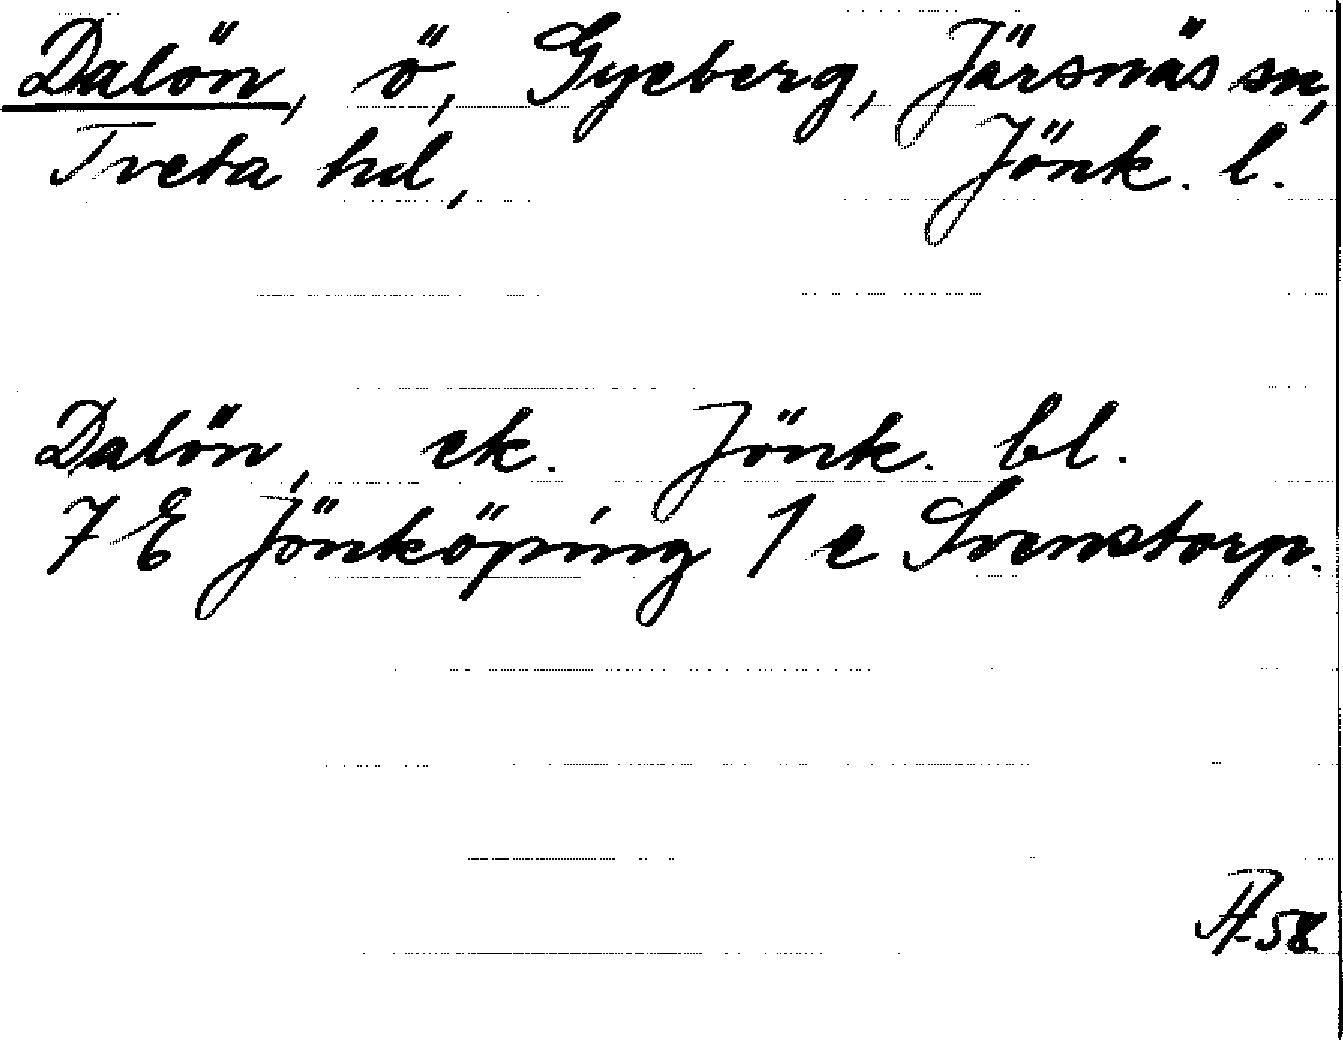 Dalön, ö, Gyeberg, Järsnäs sn,
Tveta hd, Jönk. l.
Dalön, ek. Jönk. bl.
7 E Jönköping 1 e Svenstorp.
58